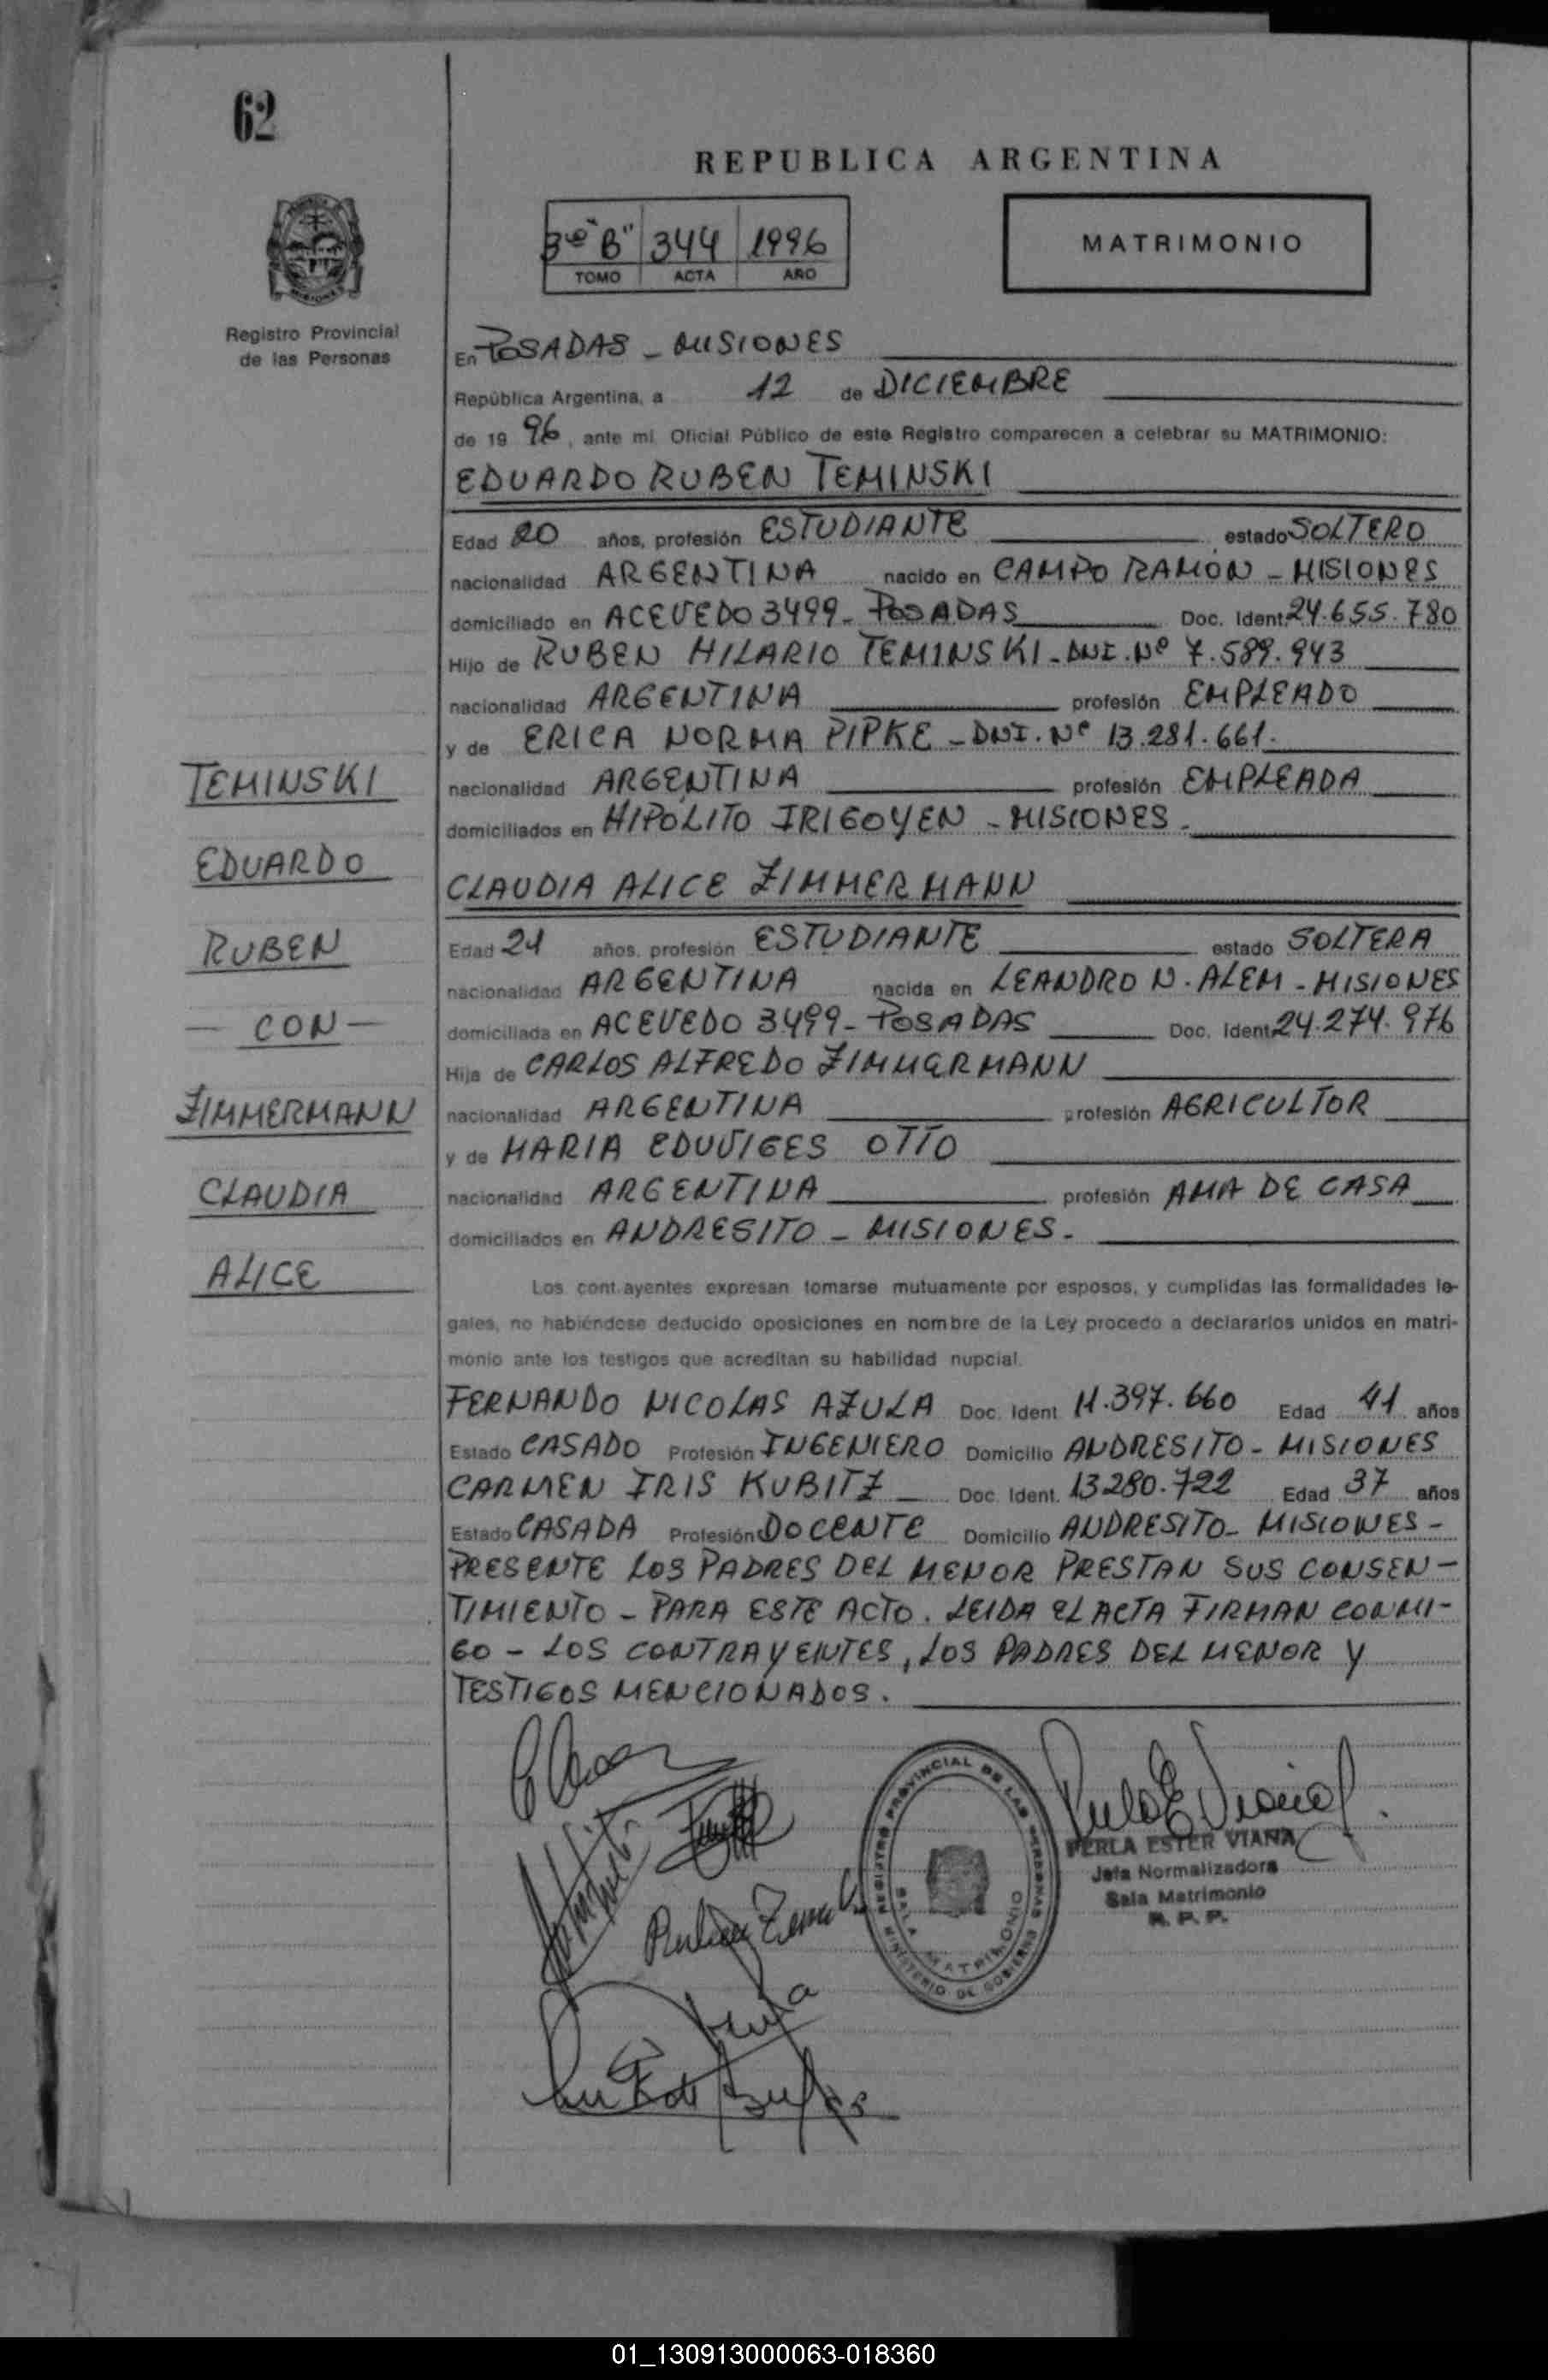 62
REPUBLICA ARGENTINA
3º "B" 344 1996
TOMO ACTA AÑO
MATRIMONIO
Registro Provincial
de las Personas
En POSADAS - MISIONES
República Argentina, a 12 de DICIEMBRE
de 19 96, ante mi Oficial Público de este Registro comparecen a celebrar su MATRIMONIO:
EDUARDO RUBEN TEMINSKI
Edad 20 años, profesión ESTUDIANTE estado SOLTERO
nacionalidad ARGENTINA nacido en CAMPO RAMON - MISIONES
domiciliado en ACEVEDO 3499 - POSADAS Doc. Ident. 24.655.780
Hijo de RUBEN HILARIO TEMINSKI - DNI. Nº 7.589.943
nacionalidad ARGENTINA profesión EMPLEADO
y de ERICA NORMA PIPKE - DNI. Nº 13.281.661.
nacionalidad ARGENTINA profesión EMPLEADA
domiciliados en HIPOLITO IRIGOYEN - MISIONES -
CLAUDIA ALICE ZIMMERMANN
Edad 21 años, profesión ESTUDIANTE estado SOLTERA
nacionalidad ARGENTINA nacida en LEANDRO N. ALEM - MISIONES
domiciliada en ACEVEDO 3499 - POSADAS Doc. Ident. 24.274.976
Hija de CARLOS ALFREDO ZIMMERMANN
nacionalidad ARGENTINA profesión AGRICULTOR
y de MARIA EDUVIGES OTTO
nacionalidad ARGENTINA profesión AMA DE CASA
domiciliados en ANDRESITO - MISIONES -
TEMINSKI
EDUARDO
RUBEN
- CON -
ZIMMERMANN
CLAUDIA
ALICE
Los cont.ayentes expresan tomarse mutuamente por esposos, y cumplidas las formalidades le-
gales, no habiéndose deducido oposiciones en nombre de la Ley procedo a declararlos unidos en matri-
monio ante los testigos que acreditan su habilidad nupcial.
FERNANDO NICOLAS AZULA Doc. Ident. 11.397.660 Edad 41 años
Estado CASADO Profesión INGENIERO Domicilio ANDRESITO - MISIONES
CARMEN IRIS KUBITZ Doc. Ident. 13280.722 Edad 37 años
Estado CASADA Profesión DOCENTE Domicilio ANDRESITO - MISIONES -
PRESENTE LOS PADRES DEL MENOR PRESTAN SUS CONSEN-
TIMIENTO - PARA ESTE ACTO. LEIDA EL ACTA FIRMAN CONMI-
GO - LOS CONTRAYENTES, LOS PADRES DEL MENOR Y
TESTIGOS MENCIONADOS.
REGISTRO PROVINCIAL DE LAS PERSONAS
SALA MATRIMONIO
MINISTERIO DE GOBIERNO
PERLA ESTER VIANA
Jefa Normalizadora
Sala Matrimonio
R. P. P.
01_130913000063-018360